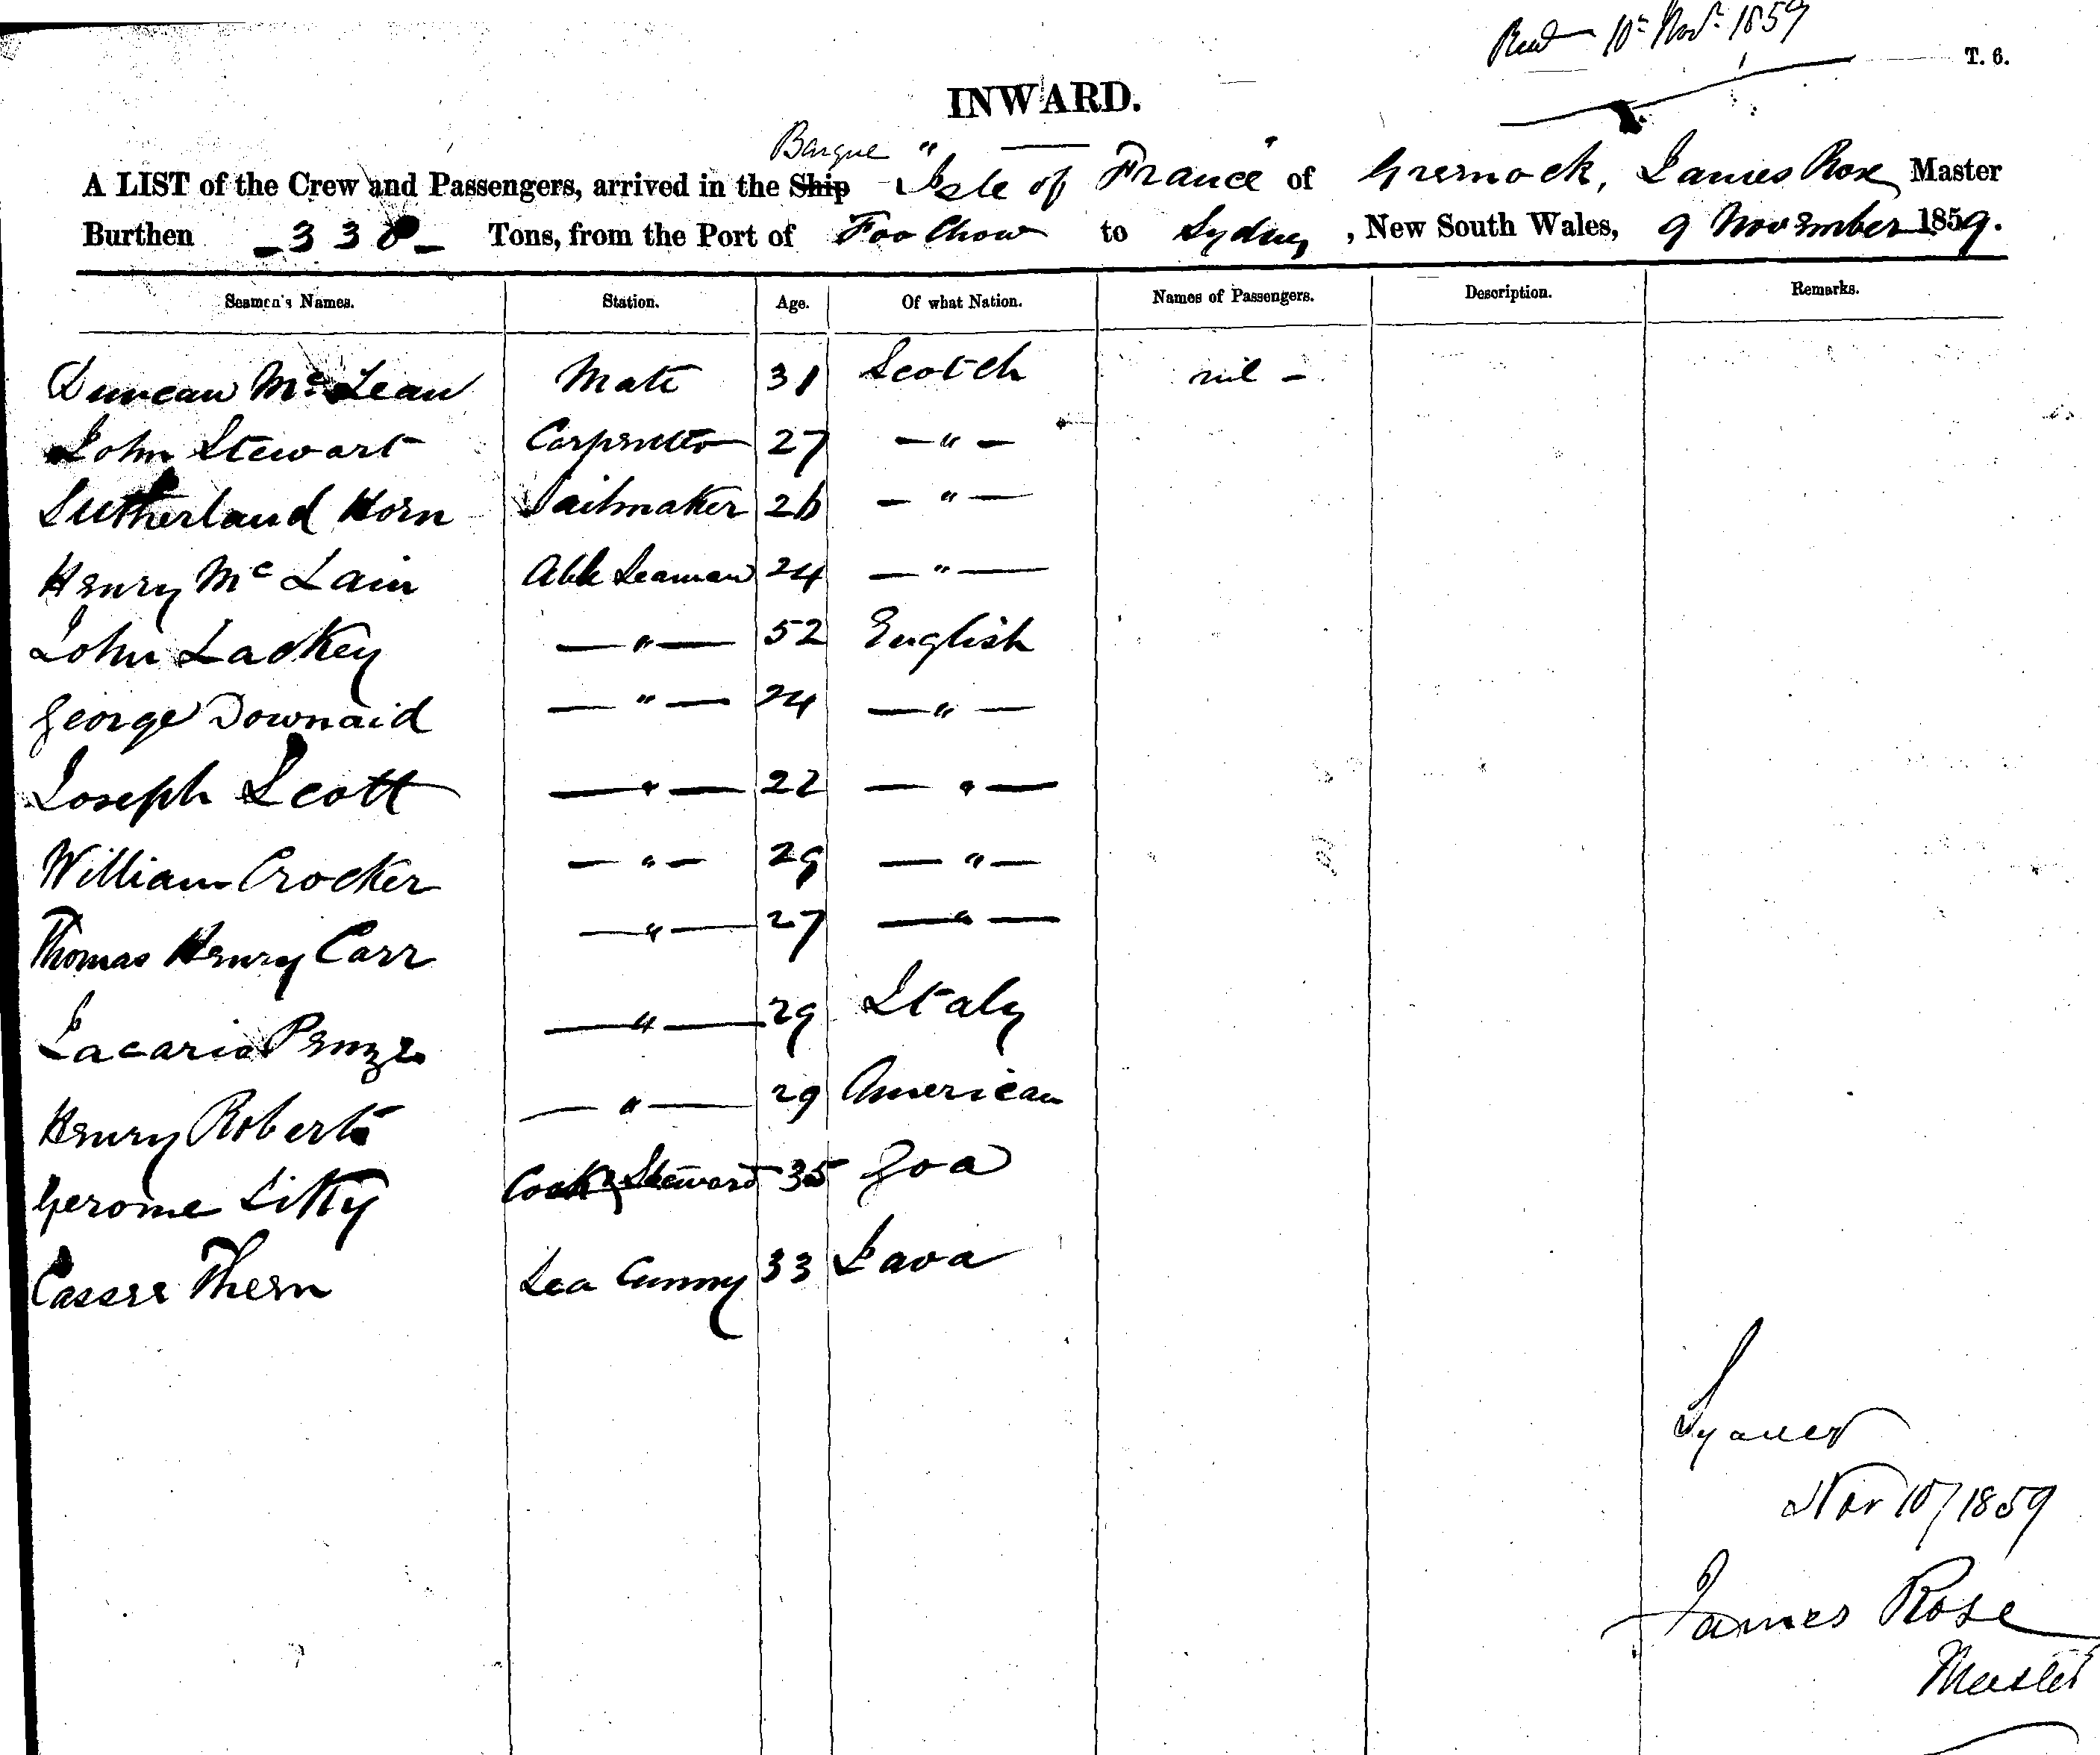 Recd 10th Novr 1859
T. 6.
INWARD.
Barque
A LIST of the Crew and Passengers, arrived in the Ship "Isle of France" of Greenock, James Rose Master
Burthen - 338 - Tons, from the Port of Foo Chow to Sydney, New South Wales, 9 November 1859.
Seamen's Names. Station. Age. Of what Nation. Names of Passengers. Description. Remarks.
Duncan McLean Mate 31 Scotch nil -
John Stewart Carpenter 27 — " —
Sutherland Horn Sailmaker 26 — " —
Henry McLain Able Seaman 24 — " —
John Lackey — " — 52 English
George Downaid — " — 24 — " —
Joseph Scott — " — 22 — " —
William Crocker — " — 29 — " —
Thomas Henry Carr — " — 27 — " —
— " — 29 Italy
Henry Roberts — " — 29 American
Gerome Litty Cook & Steward 35 Goa
Thern Sea Cunny 33 Java
Sydney
Nov 10/1859
James Rose
Master